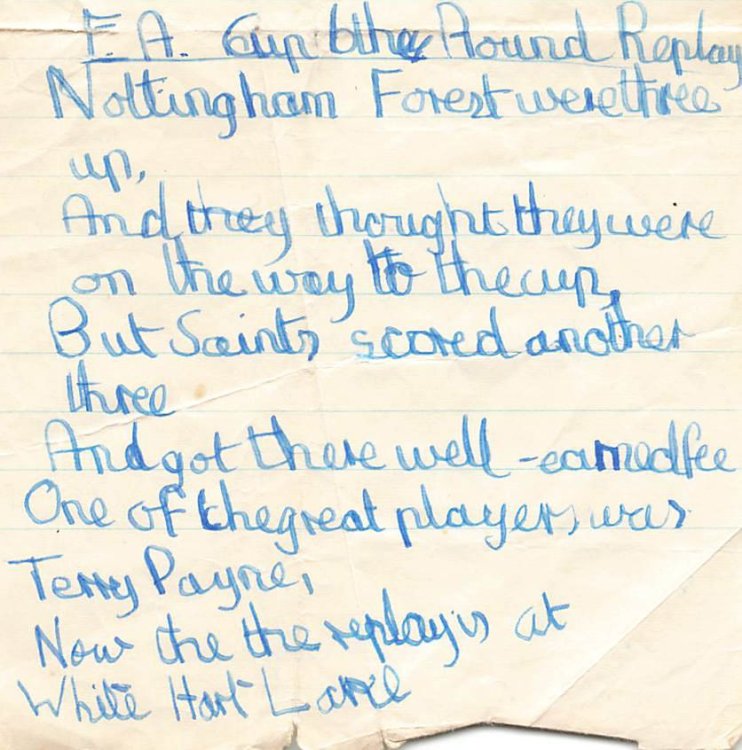 F. A. Cup 6the Round Replay
Nottingham Forest were three
up,
And they thought they were
on the way to the cup,
But Saints scored another
three
And got there well-earned fee
One of the great players was
Terry Payne,
Now the the replay is at
White Hart Lane